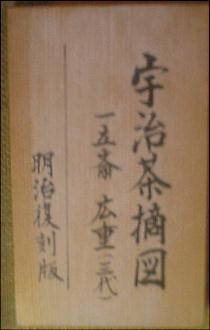 宇治茶摘図
一五斎 広重(三代)
明治復刻版